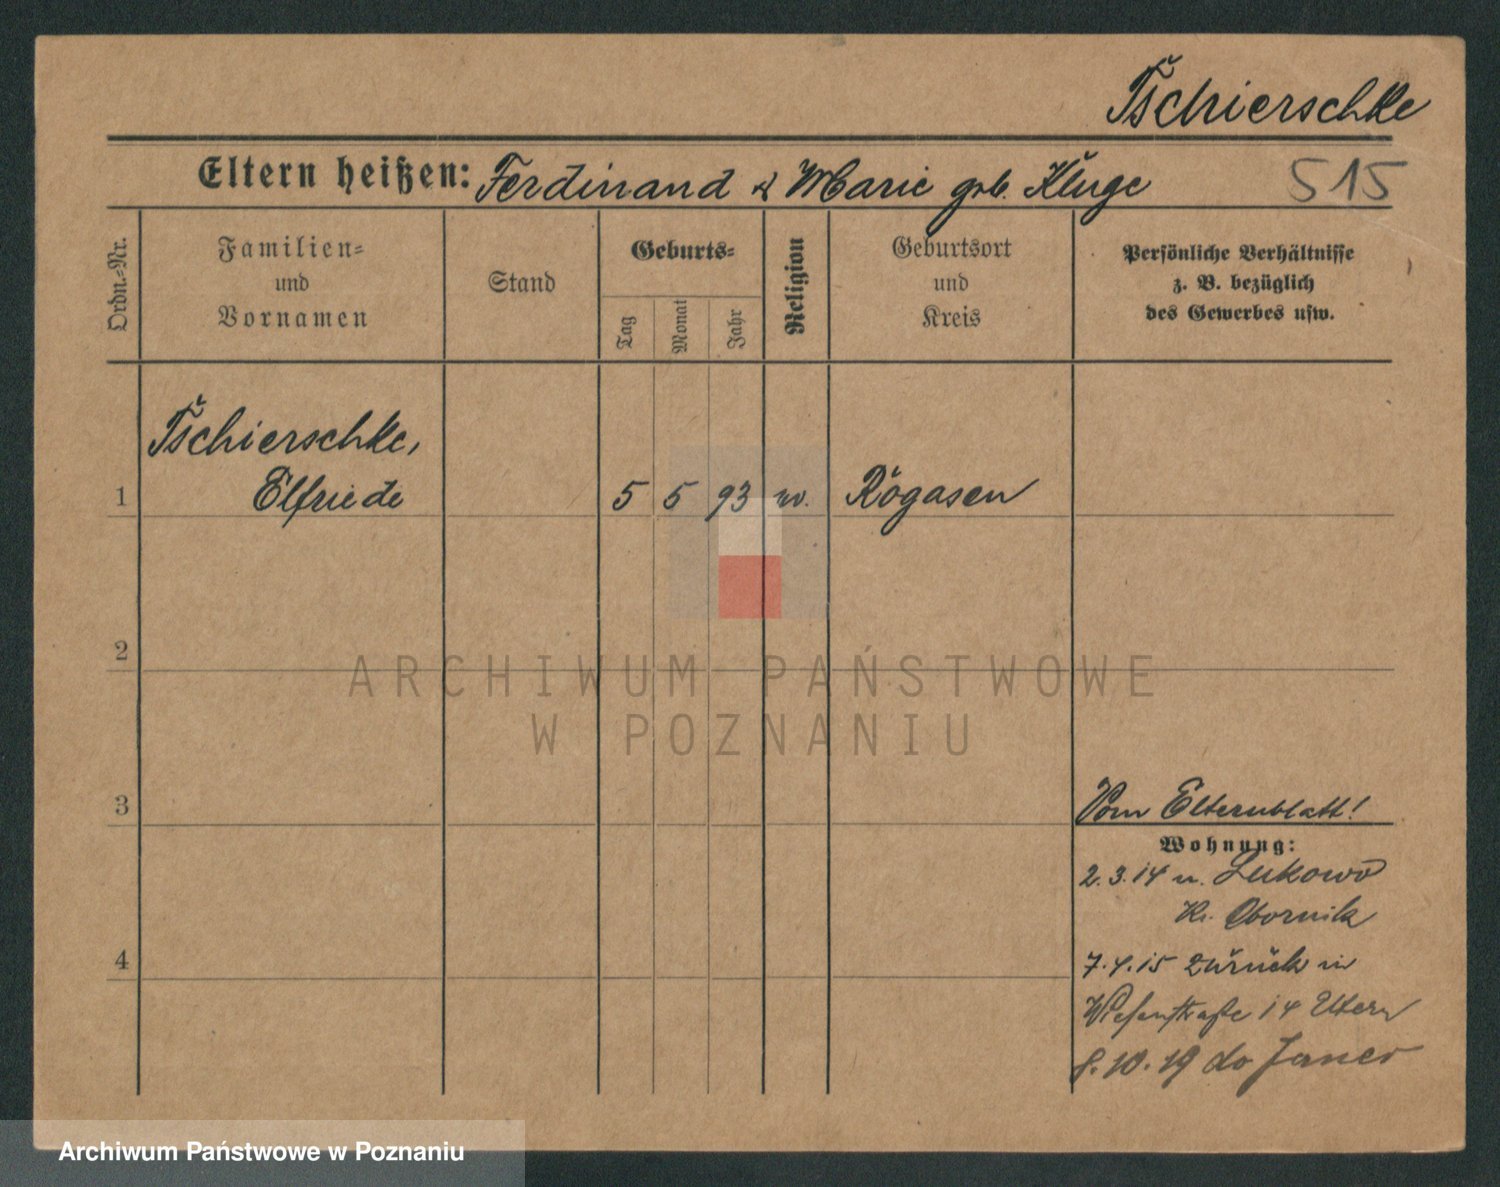 Tschierschke
Eltern heißen: Ferdinand & Marie geb. Kluge 515
Ordn.-Nr.
Familien-
und
Vornamen
Stand
Geburts-
Tag
Monat
Jahr
Religion
Geburtsort
und
Kreis
Persönliche Verhältnisse
z. B. bezüglich
des Gewerbes usw.
Tschierschke,
1 Elfriede 5 5 93 Rogasen
2
ARCHIWUM PAŃSTWOWE
W POZNANIU
3
Vom Elternblatt!
Wohnung:
2.3.14 n. Lukowo
Kr. Obornik
4
7.4.15 zurück in
Wiesenstraße 14 Eltern
8.10.19 do
Archiwum Państwowe w Poznaniu